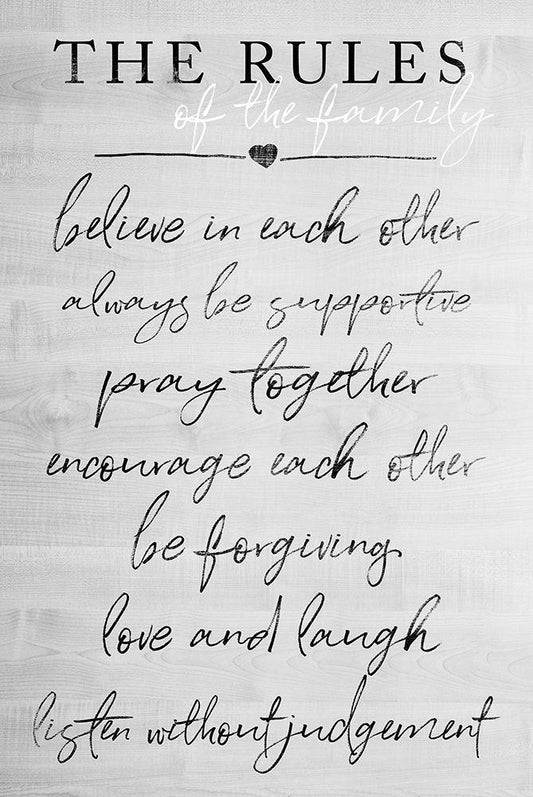 THE RULES
of the family
believe in each other
always be supportive
pray together
encourage each other
be forgiving
love and laugh
listen without judgement